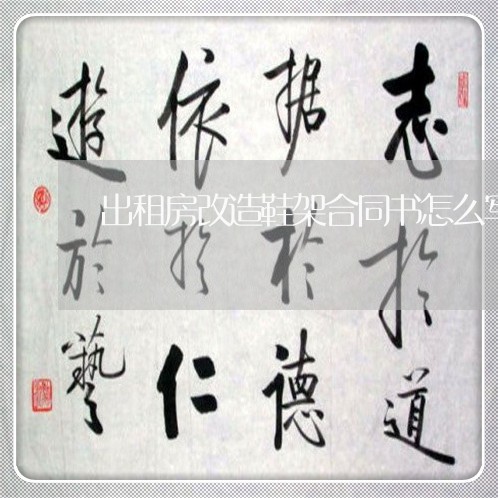 志於道
据於德
依於仁
遊於藝
出租房改造鞋架合同书怎么写